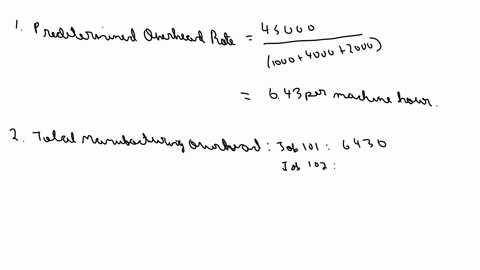 1. Predetermined Overhead Rate = 45000 / (1000 + 4000 + 2000)
= 6.43 per machine hour.
2. Total Manufacturing Overhead : Job 101 : 6430
Job 102 :